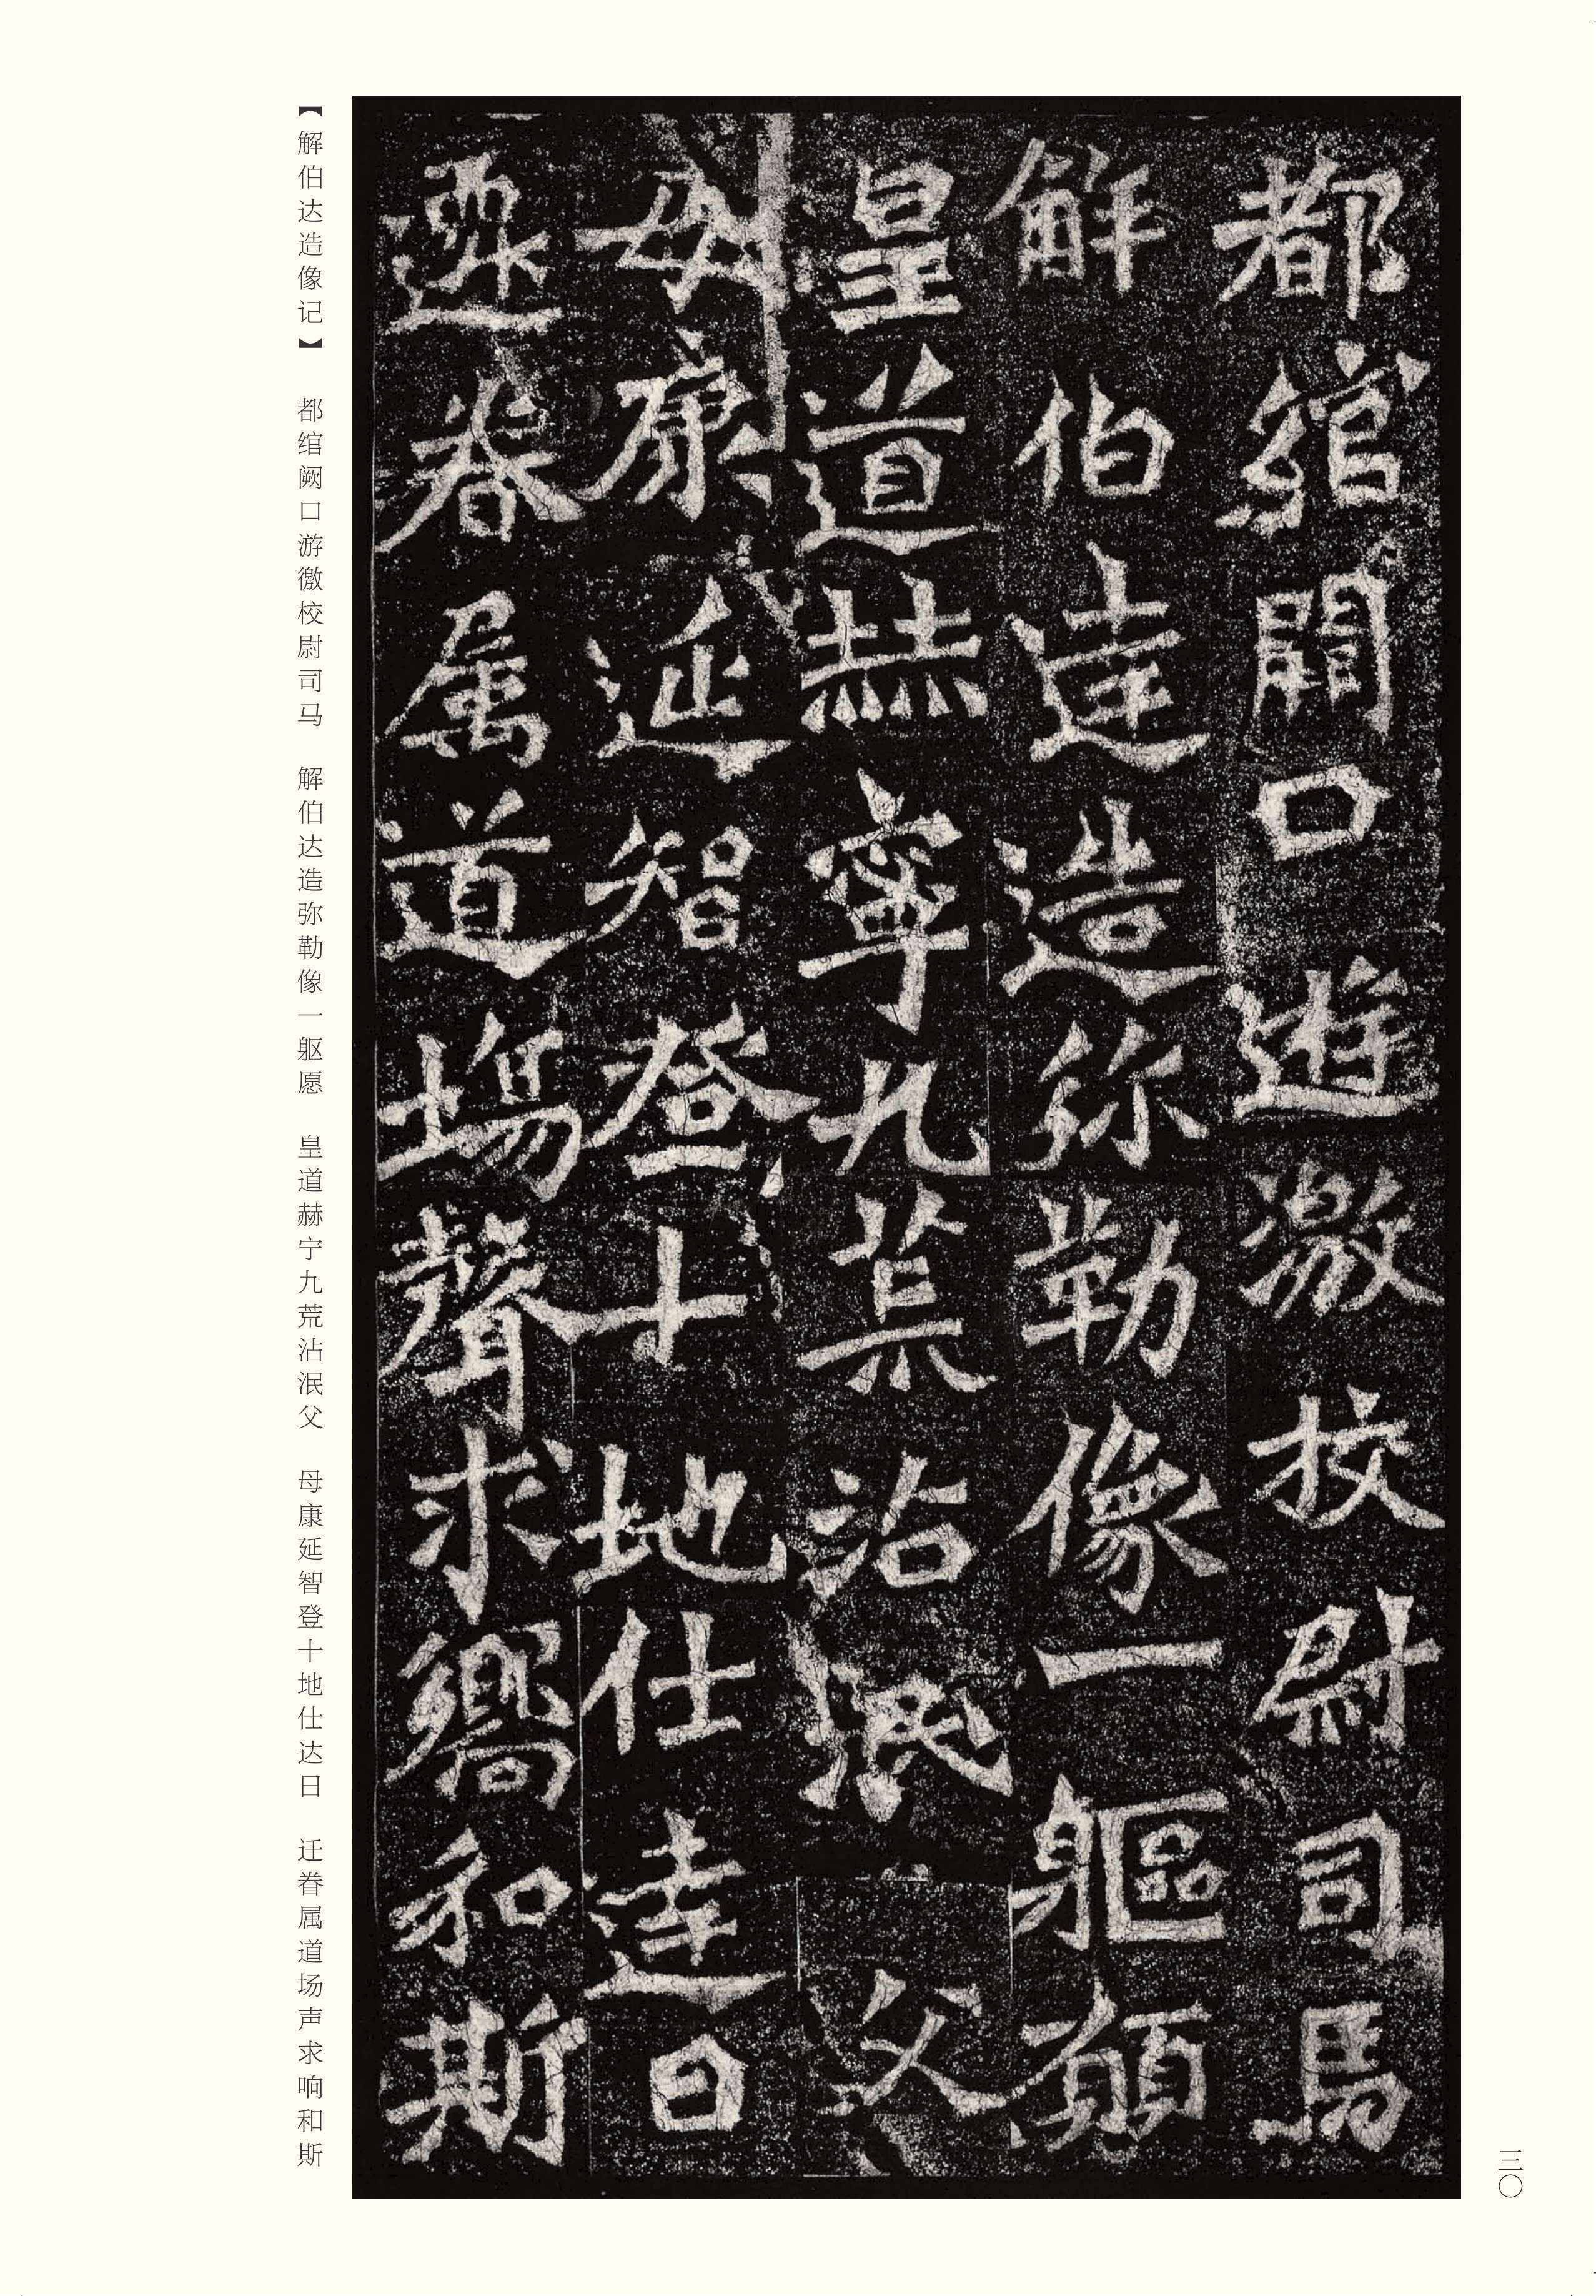 都綰闕口遊激校尉司馬
解伯達造弥勒像一軀願
皇道赫寧九荒沾泯父
母康延智登十地仕達日
迁眷属道場聲求響和斯
【解伯达造像记】 都绾阙口游徼校尉司马 解伯达造弥勒像一躯愿 皇道赫宁九荒沾泯父 母康延智登十地仕达日 迁眷属道场声求响和斯
三〇